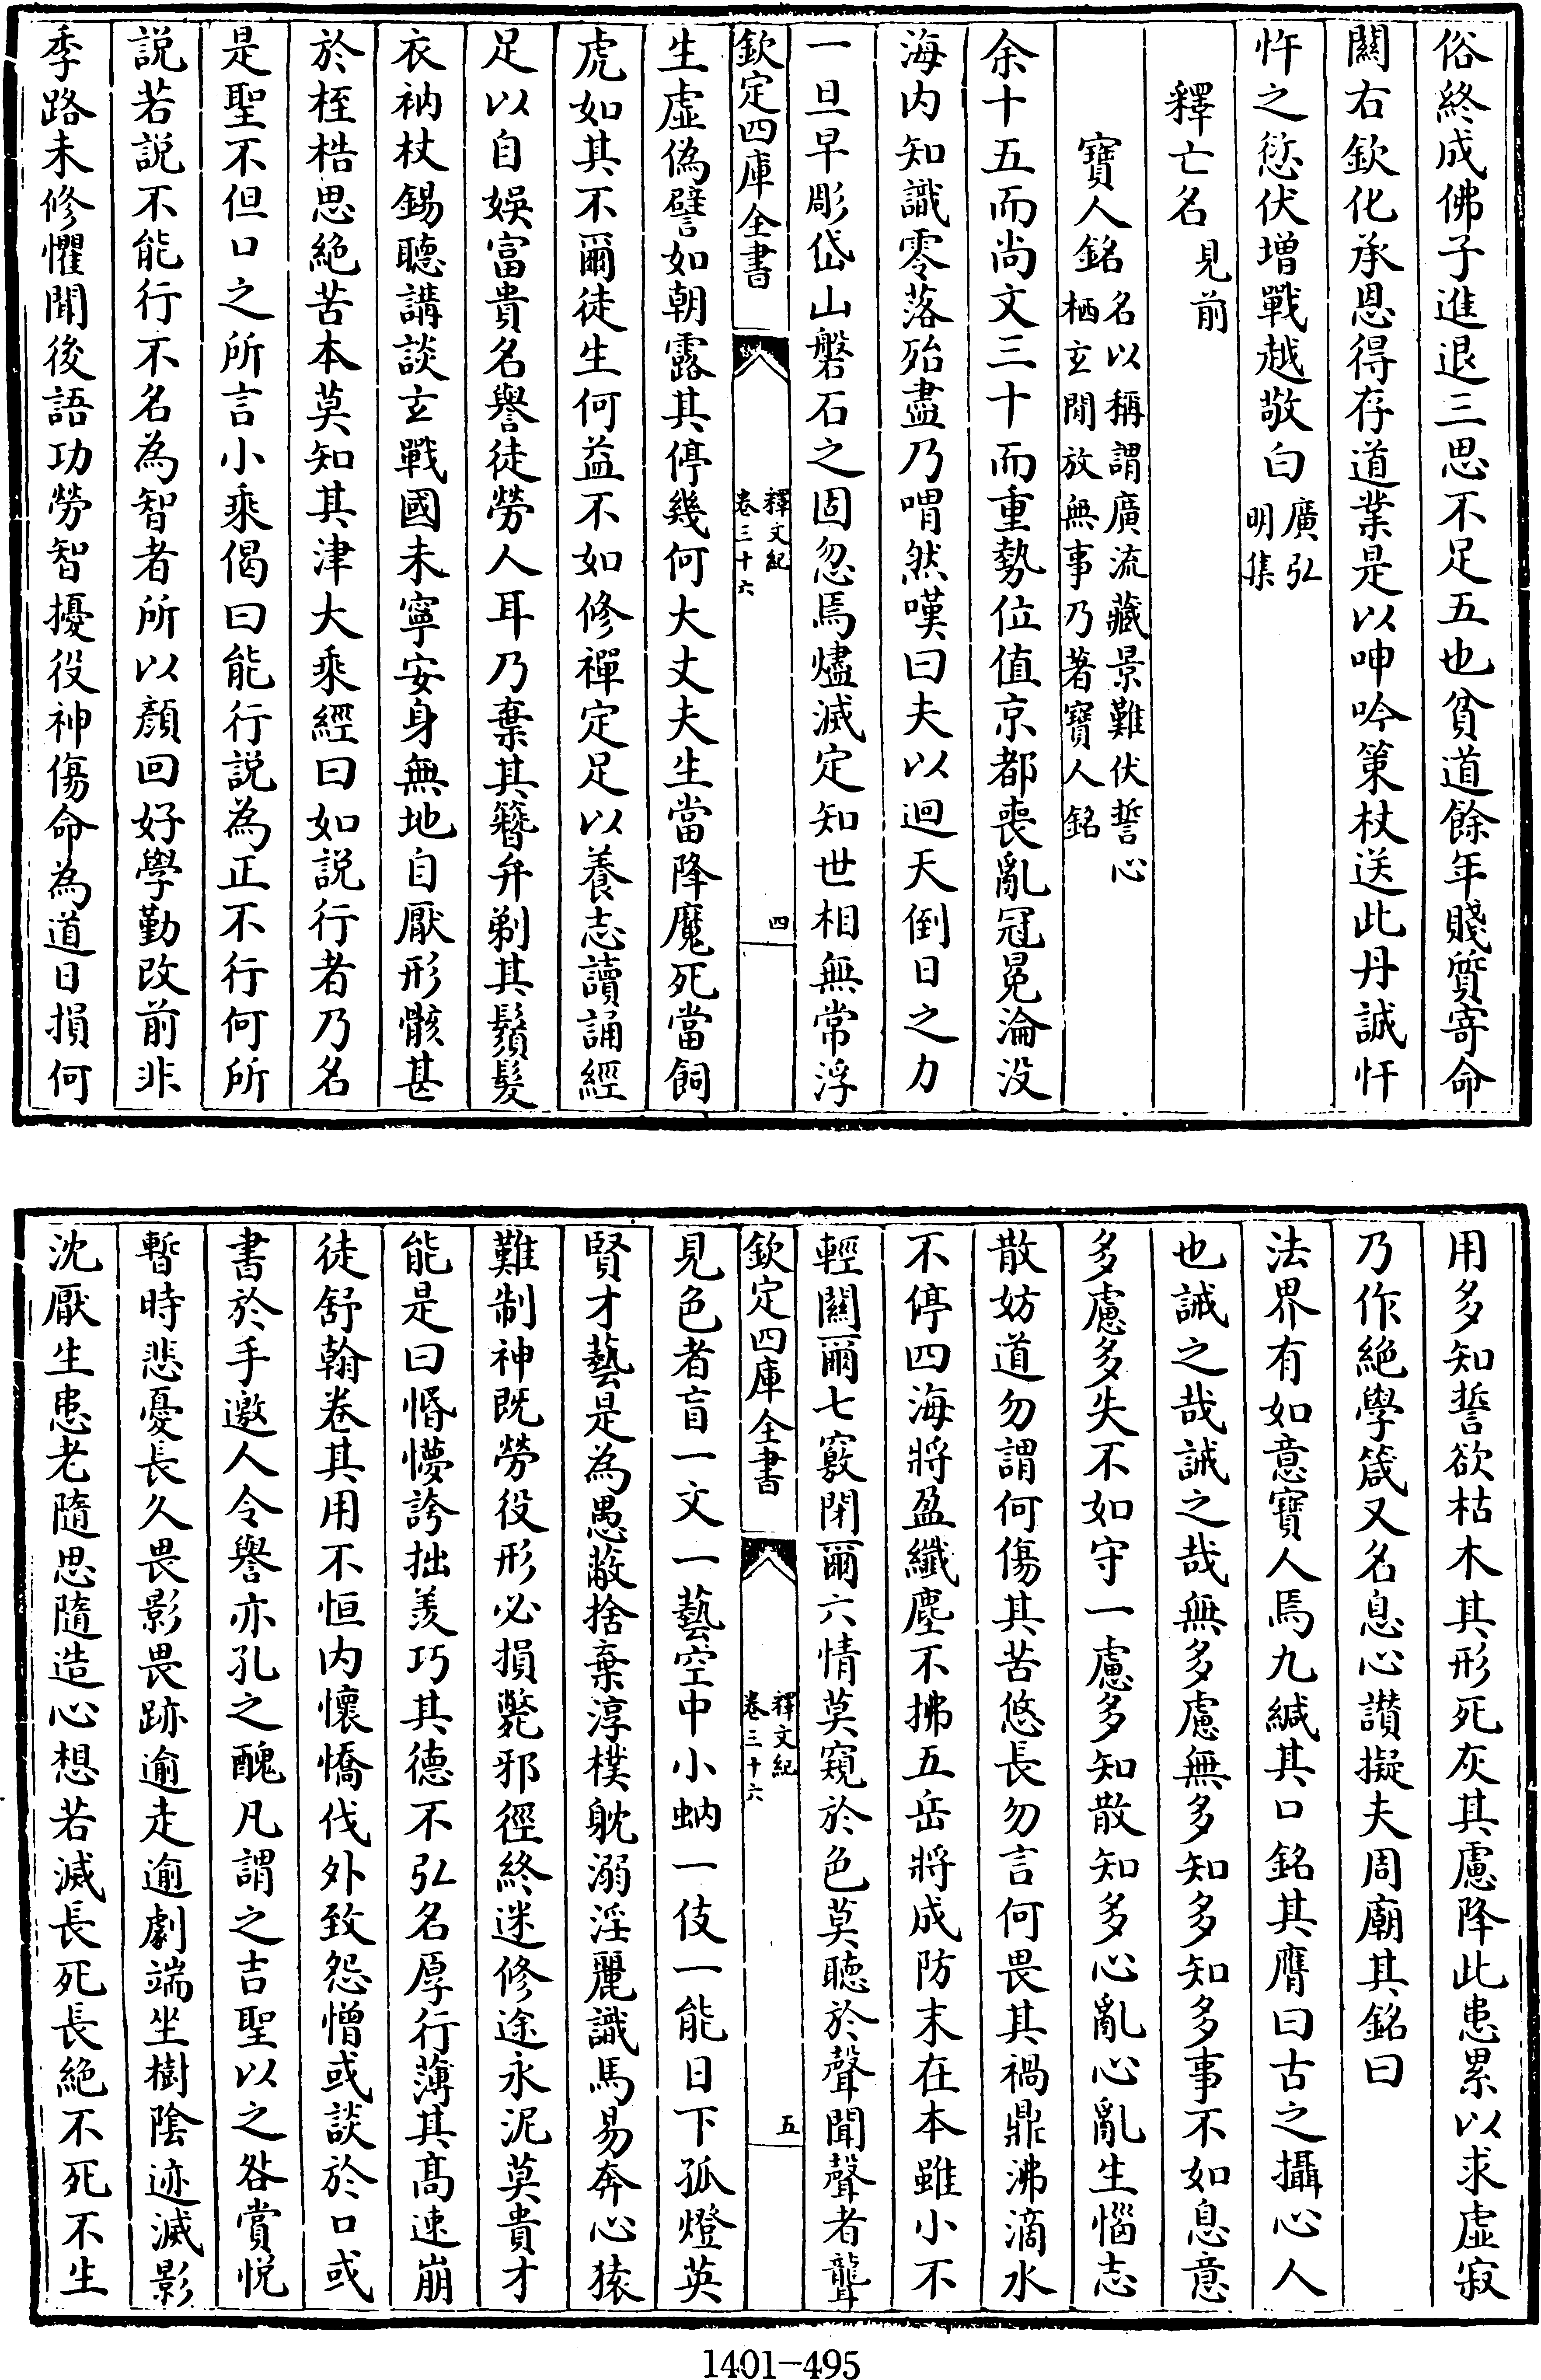 俗終成佛子進退三思不足五也貧道餘年賤質寄命
關右欽化承恩得存道業是以呻吟策杖送此丹誠忓
忤之愆伏增戰越敬白廣弘
明集
釋亡名見前
寶人銘名以稱謂廣流藏景難伏誓心
栖玄閒放無事乃著寶人銘
余十五而尚文三十而重勢位值京都喪亂冠冕淪没
海内知識零落殆盡乃喟然嘆曰夫以迴天倒日之力
一旦早彫岱山磐石之固忽焉燼滅定知世相無常浮
欽定四庫全書
釋文紀
卷三十六
四
生虛偽譬如朝露其停幾何大丈夫生當降魔死當飼
虎如其不爾徒生何益不如修禪定足以養志讀誦經
足以自娛富貴名譽徒勞人耳乃棄其簪弁剃其鬚髮
衣衲杖錫聽講談玄戰國未寧安身無地自厭形骸甚
於桎梏思絶苦本莫知其津大乘經曰如説行者乃名
是聖不但口之所言小乘偈曰能行説為正不行何所
説若説不能行不名為智者所以顔回好學勤改前非
季路未修懼聞後語功勞智擾役神傷命為道日損何
用多知誓欲枯木其形死灰其慮降此患累以求虛寂
乃作絶學箴又名息心讃擬夫周廟其銘曰
法界有如意寶人焉九緘其口銘其膺曰古之攝心人
也誡之哉誡之哉無多慮無多知多知多事不如息意
多慮多失不如守一慮多知散知多心亂心亂生惱志
散妨道勿謂何傷其苦悠長勿言何畏其禍鼎沸滴水
不停四海將盈纖塵不拂五岳將成防末在本雖小不
輕關爾七竅閉爾六情莫窺於色莫聽於聲聞聲者聾
欽定四庫全書
釋文紀
卷三十六
五
見色者盲一文一藝空中小蚋一伎一能日下孤燈英
賢才藝是為愚蔽捨棄淳樸躭溺淫麗識馬易奔心猿
難制神既勞役形必損斃邪徑終迷修途永泥莫貴才
能是曰惛懵誇拙羨巧其德不弘名厚行薄其高速崩
徒舒翰卷其用不恒内懷憍伐外致怨憎或談於口或
書於手邀人令譽亦孔之醜凡謂之吉聖以之咎賞悦
暫時悲憂長久畏影畏跡逾走逾劇端坐樹陰迹滅影
沈厭生患老隨思隨造心想若滅長死長絶不死不生
1401-495